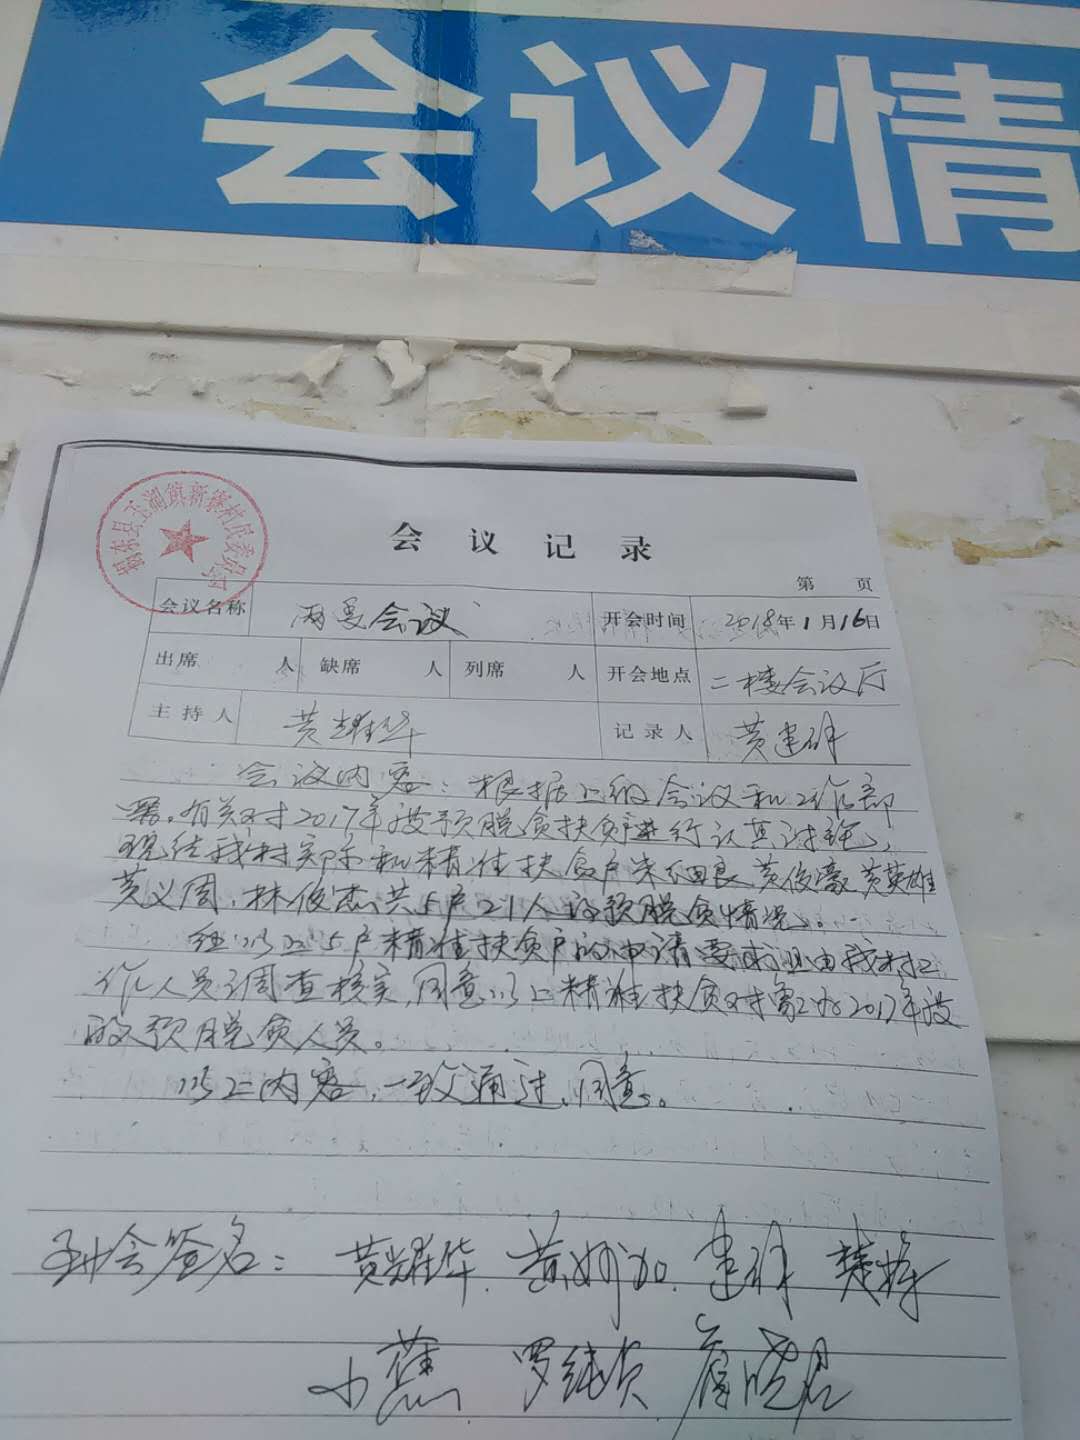 会议情
揭东县玉湖镇新寨村民委员会
会议记录
第 页
会议名称 两委会议 开会时间 2018年1月16日
出席 人 缺席 人 列席 人 开会地点 二楼会议厅
主持人 黄耀华 记录人 黄建
会议内容：根据上级会议和工作部
署。有关对2017年 预脱贫扶贫 进行认真讨论，
现结我村实际和精准扶贫户 细良 黄俊豪 黄英雄
黄义周、林俊杰共5户21人的预脱贫情况。
经以上5户精准扶贫户的申请要求 由我村工
作人员调查核实，同意以上精准扶贫对象 为2017年
的预脱贫人员。
以上内容，一致通过、同意。
到会签名： 黄耀华 黄 建 楚
小